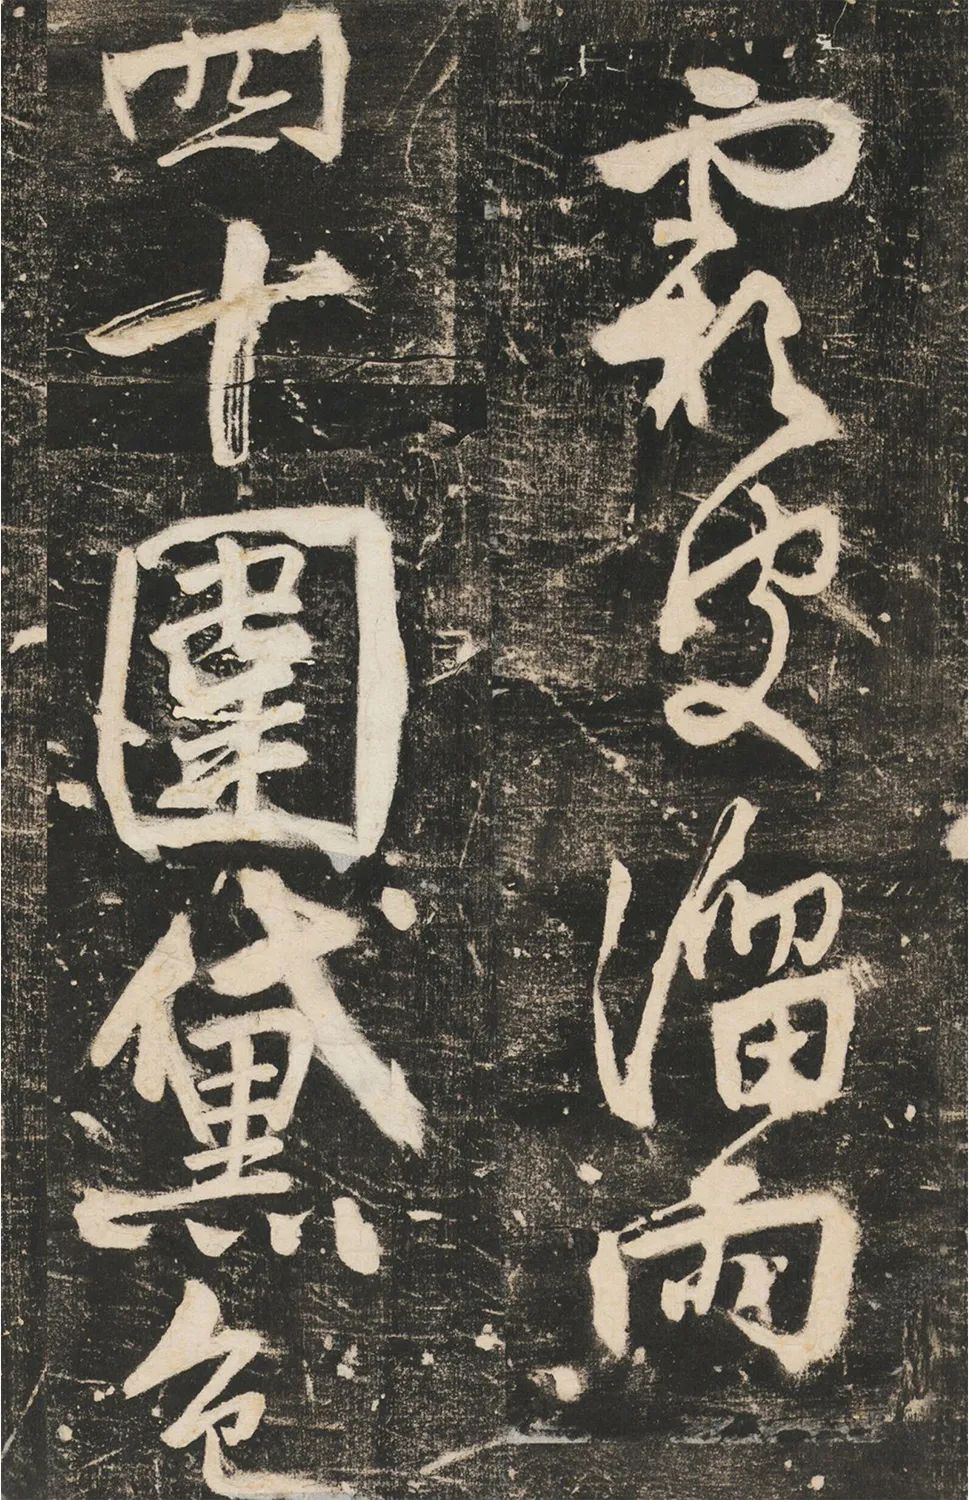 霜皮溜雨
四十圍黛色